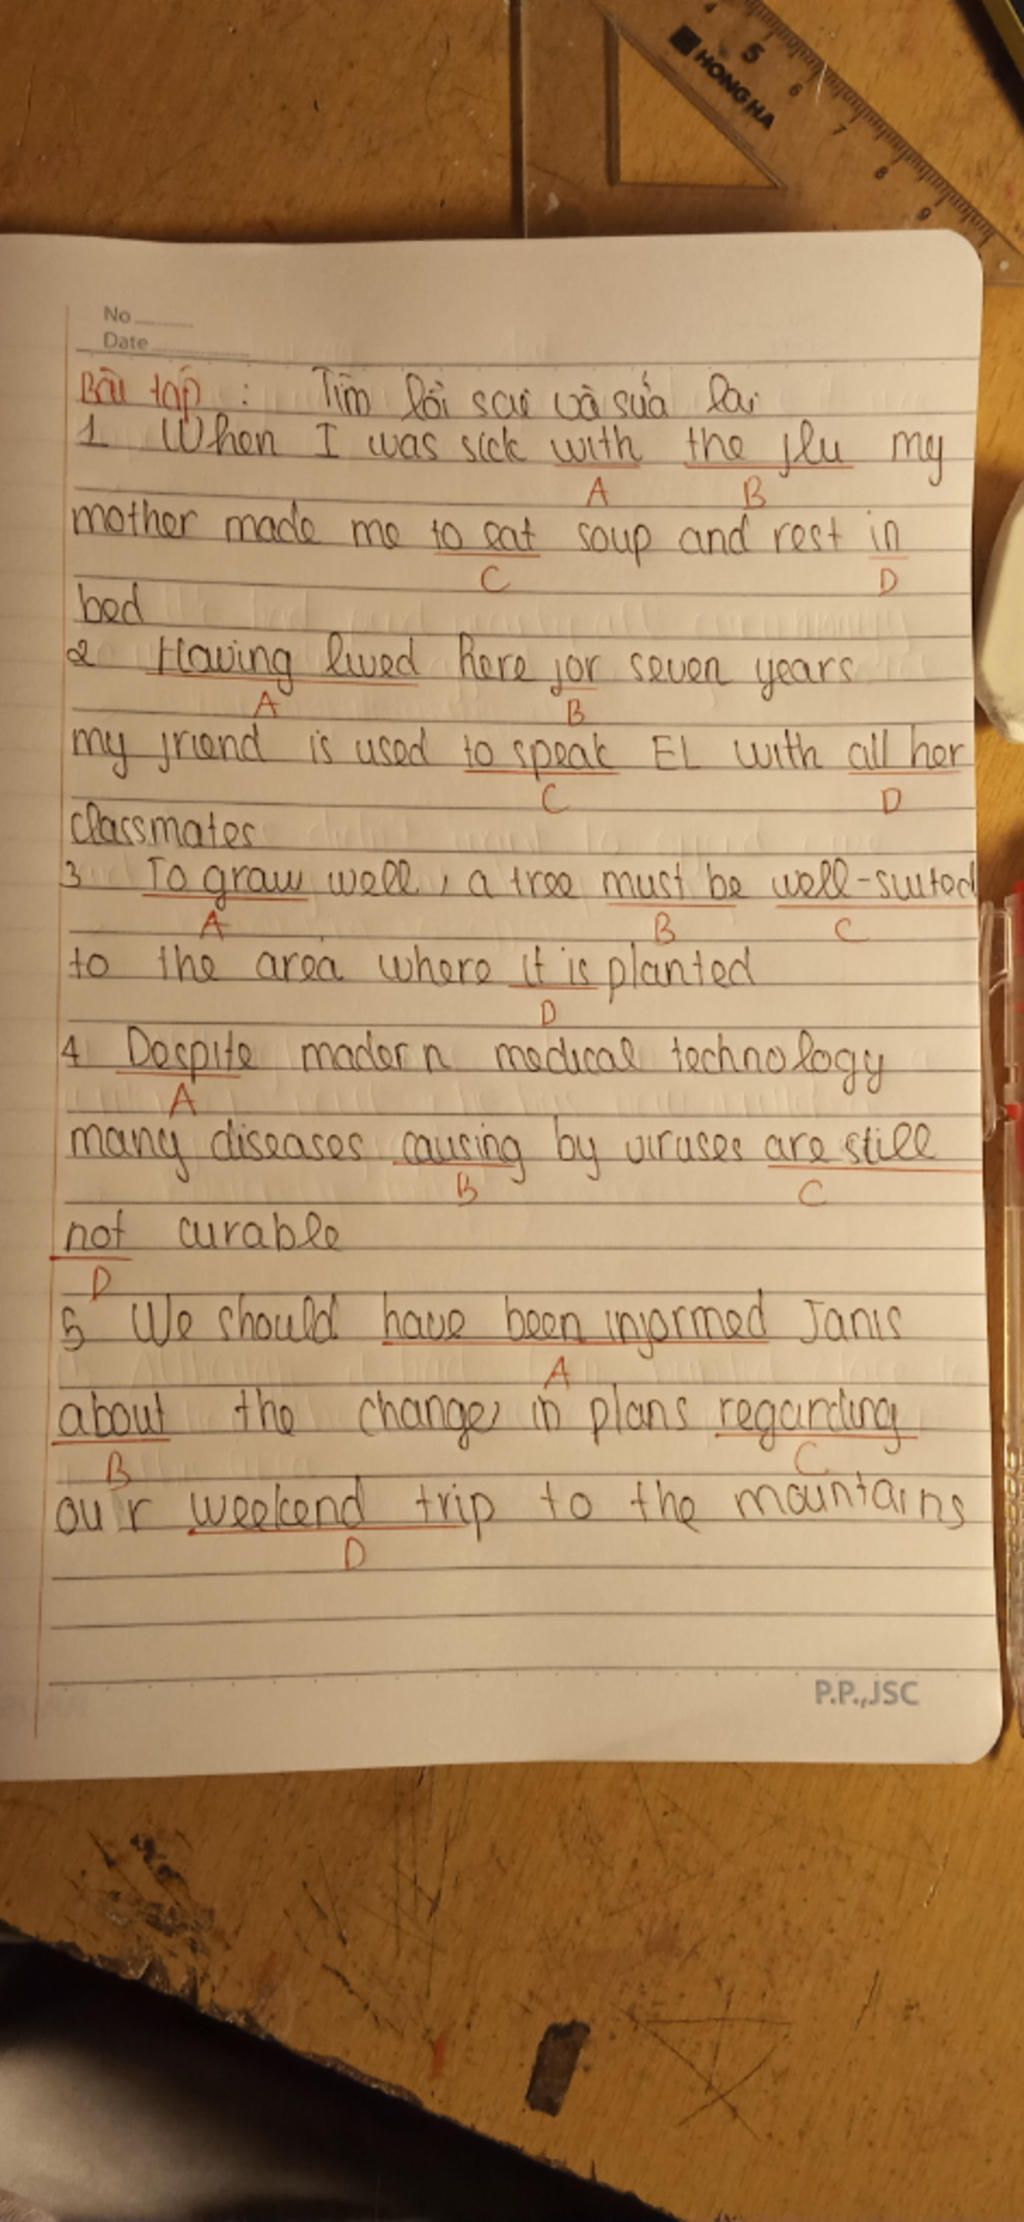 4 5 6 7 8 9
HONG HA
No
Date
Bài tập : Tìm lỗi sai và sửa lại
1 When I was sick with the flu my
A B
mother made me to eat soup and rest in
C D
bed
2 Having lived here for seven years
A B
my friend is used to speak EL with all her
C D
classmates
3 To graw well, a tree must be well-suited
A B C
to the area where it is planted
D
4 Despite madern medical technology
A
many diseases causing by viruses are still
B C
not curable
D
5 We should have been informed Janis
A
about the change, in plans regarding
B C
our weekend trip to the mountains
D
P.P.,JSC